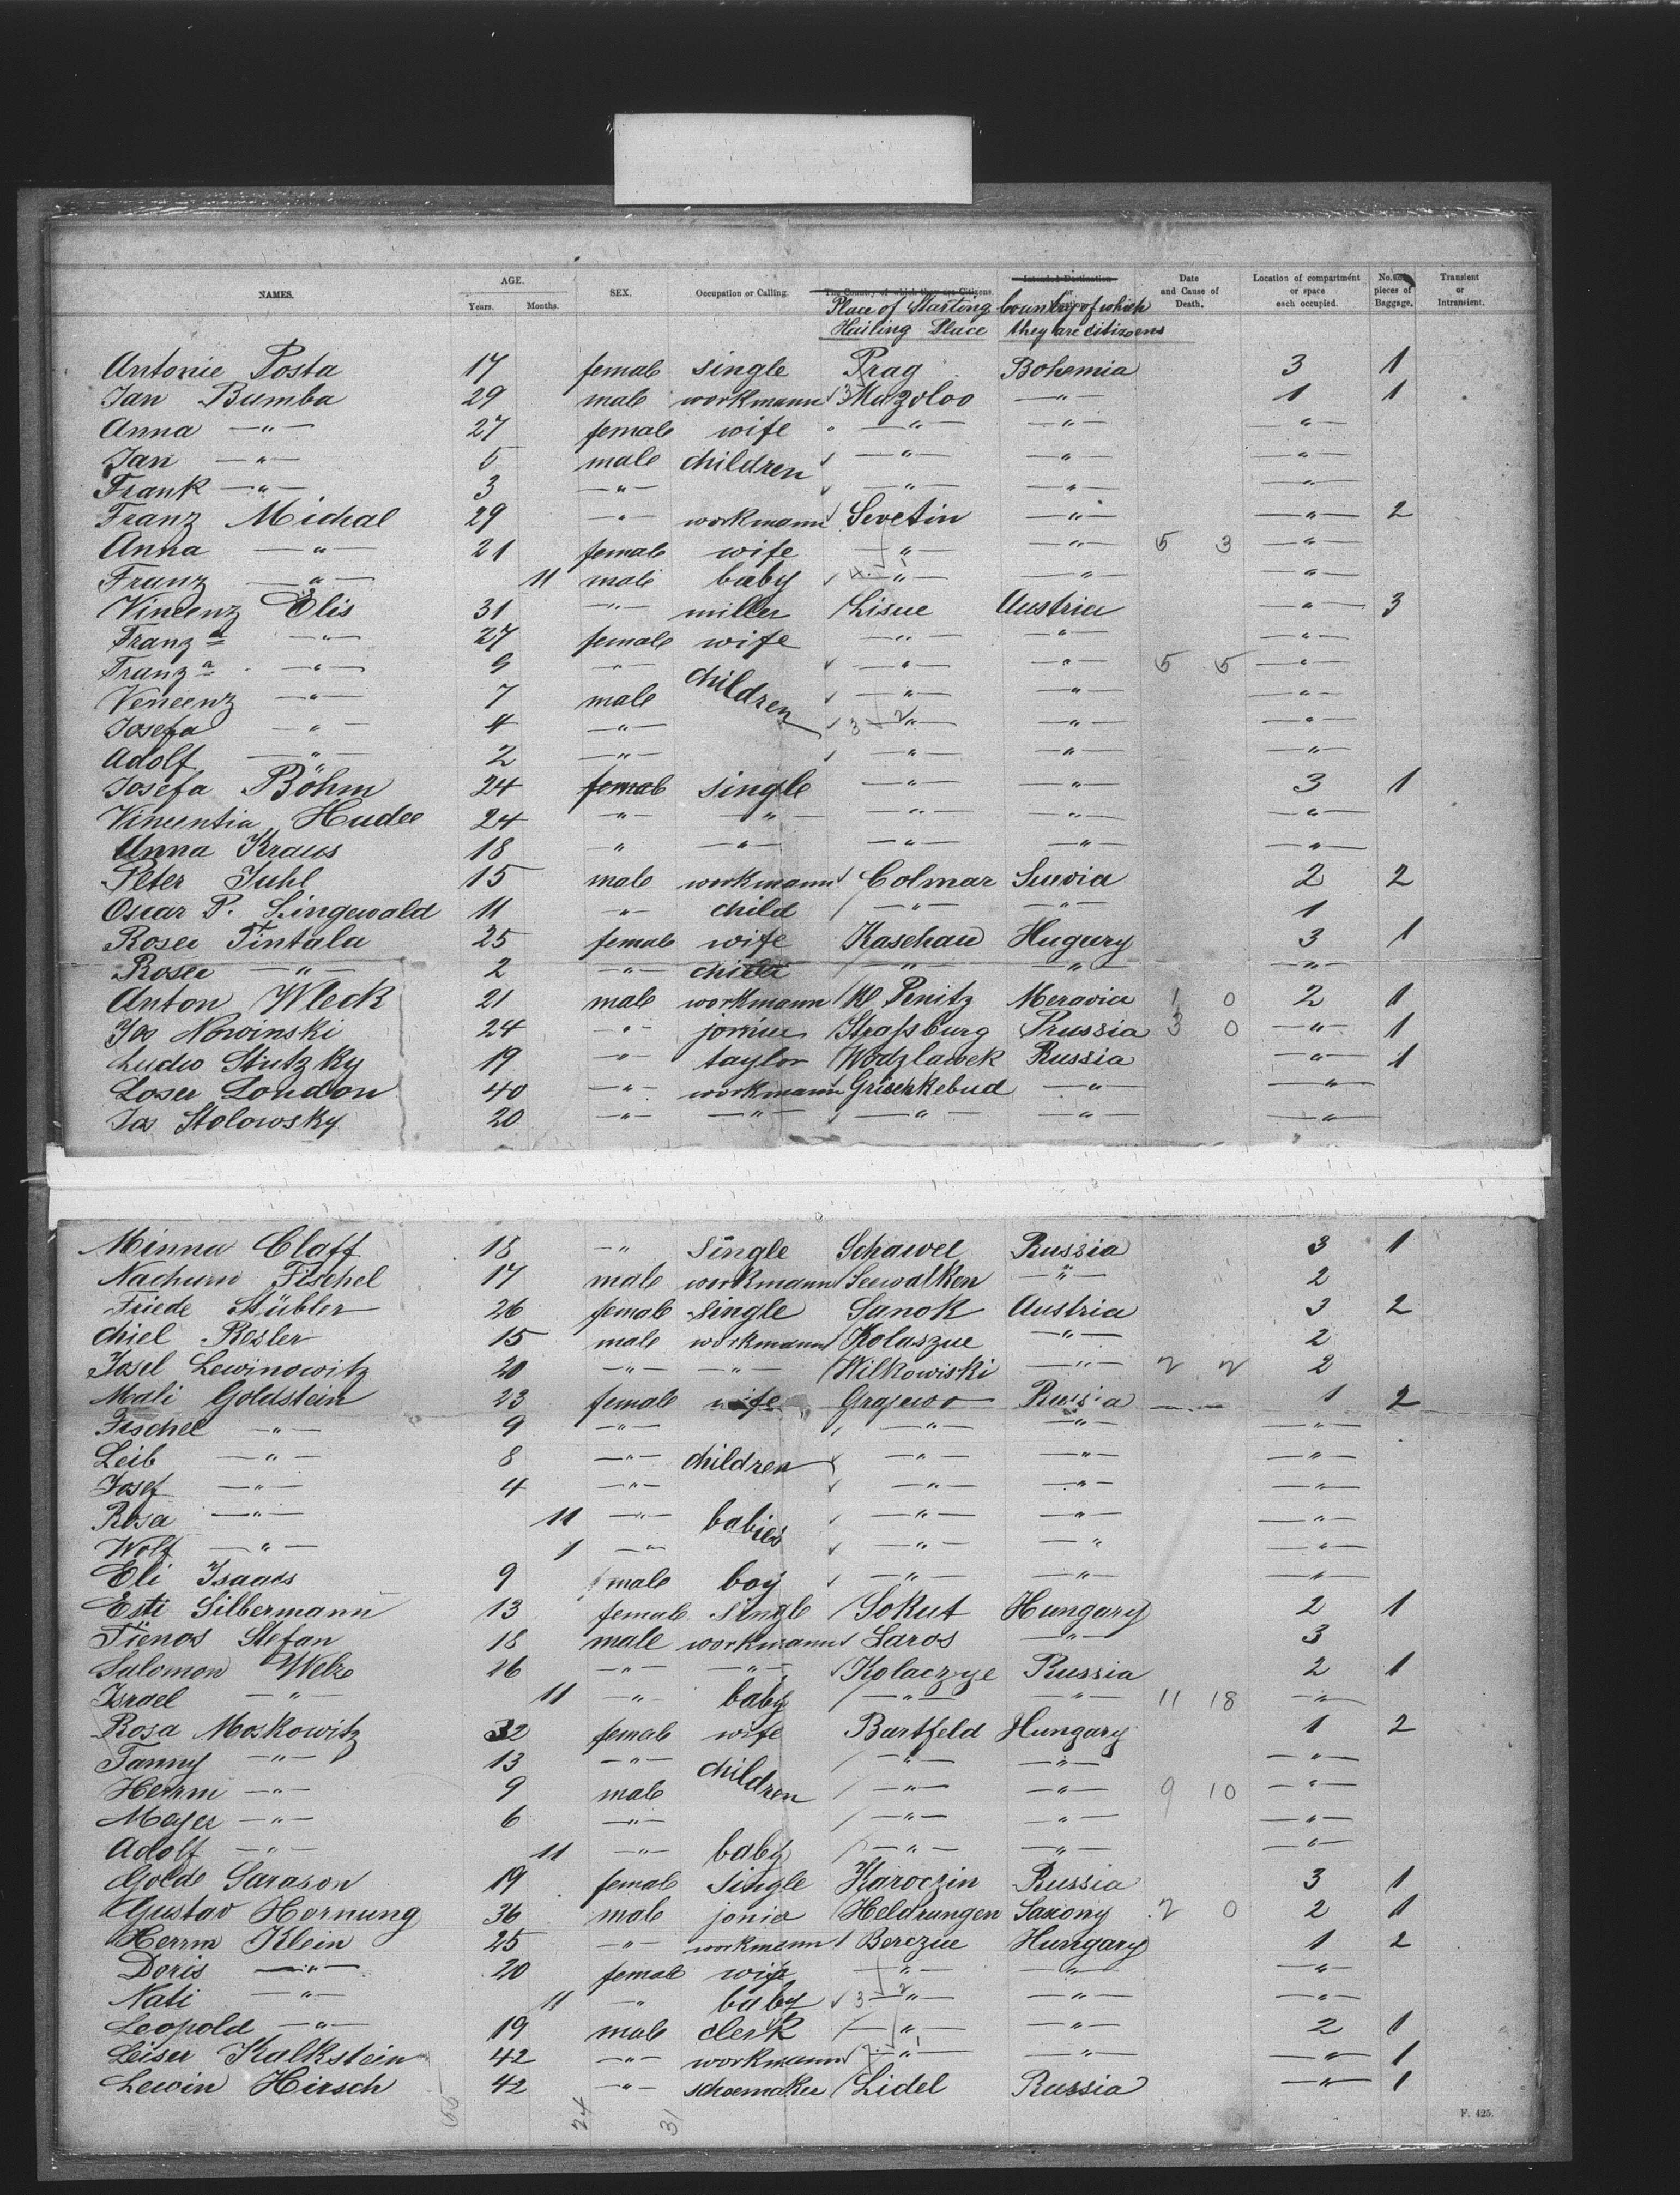 NAMES. AGE. Years. Months. SEX. Occupation or Calling. The Country of which they are Citizens. Intended Destination or Location. Date and Cause of Death. Location of compartment or space each occupied. No. of pieces of Baggage. Transient or Intransient.
Place of Starting Country of which
Hailing Place they are citizens
Antonie Posta 17 female single Prag Bohemia 3 1
Jan Bumba 29 male workmann Mazoloo —"— 1 1
Anna —"— 27 female wife —"— —"— —"—
Jan —"— 5 male children —"— —"— —"—
Frank —"— 3 —"— —"— —"— —"—
Franz Michal 29 —"— workmann Sevetin —"— —"— 2
Anna —"— 21 female wife —"— —"— 5 3 —"—
Franz —"— 11 male baby —"— —"— —"—
Vincenz Elis 31 —"— miller Lisue Austria —"— 3
Franza —"— 27 female wife —"— —"— —"—
Franza —"— 9 —"— children —"— —"— 5 5 —"—
Vencenz —"— 7 male —"— —"— —"—
Josefa —"— 4 —"— 3 2 —"— —"— —"—
Adolf —"— 2 —"— —"— —"— —"—
Josefa Böhm 24 female single —"— —"— 3 1
Vincentia Hudec 24 —"— —"— —"— —"— —"—
Anna Kraus 18 —"— —"— —"— —"— —"—
Peter Juhl 15 male workmann Colmar Suevia 2 2
Oscar P. Lingewald 11 —"— child —"— —"— 1
Roser Tintala 25 female wife Kaschau Hugury 3 1
Roser —"— 2 —"— child —"— —"— —"—
Anton Wleck 21 male workmann Kl Penitz Meravia 1 0 2 1
Jos Nowinski 24 —"— Strassburg Prussia 3 0 —"— 1
Ludw Stutzky 19 —"— taylor Wodzlawek Russia —"— 1
Loser London 40 —"— workmann Grischkebud —"— —"—
Jos Stolowsky 20 —"— —"— —"— —"— —"—
Minna Claff 18 —"— single Schawel Russia 3 1
Nachum Fischel 17 male workmann Seewalken —"— 2
Friede Stübler 26 female single Sanok Austria 3 2
Chiel Resler 15 male workmann Kolaszue —"— 2
Josel Lewinowitz 20 —"— —"— Wilkowiski —"— 2 2 2
Mali Goldstein 23 female wife Grajewo Russia 1 2
Fischel —"— 9 —"— —"— —"— —"—
Leib —"— 8 —"— children —"— —"— —"—
Josef —"— 4 —"— —"— —"— —"—
Rosa —"— 11 —"— babies —"— —"— —"—
Wolf —"— 1 —"— —"— —"— —"—
Eli Isaacs 9 male boy —"— —"— —"—
Esti Silbermann 13 female single Sokut Hungary 2 1
Tienos Stefan 18 male workmann Saros —"— 3
Salomon Welz 26 —"— —"— Kolaczye Russia 2 1
Israel —"— 11 —"— baby —"— —"— 11 18 —"—
Rosa Moskowitz 32 female wife Bartfeld Hungary 1 2
Fanny —"— 13 —"— children —"— —"— —"—
Herrm —"— 9 male —"— —"— 9 10 —"—
Majer —"— 6 —"— —"— —"— —"—
Adolf —"— 11 —"— baby —"— —"— —"—
Golde Sarason 19 female single Karoczin Russia 3 1
Gustav Hornung 36 male jonia Heldrungen Saxony 2 0 2 1
Herrm Klein 25 —"— workmann Berczue Hungary 1 2
Doris —"— 20 female wife —"— —"— —"—
Nati —"— 11 —"— baby 3 2 —"— —"— —"—
Leopold —"— 19 male clerk —"— —"— 2 1
Leiser Kalkstein 42 —"— workmann —"— —"— —"— 1
Lewin Hirsch 42 —"— schoemaker Lidel Russia —"— 1
55 24 31
F. 425.